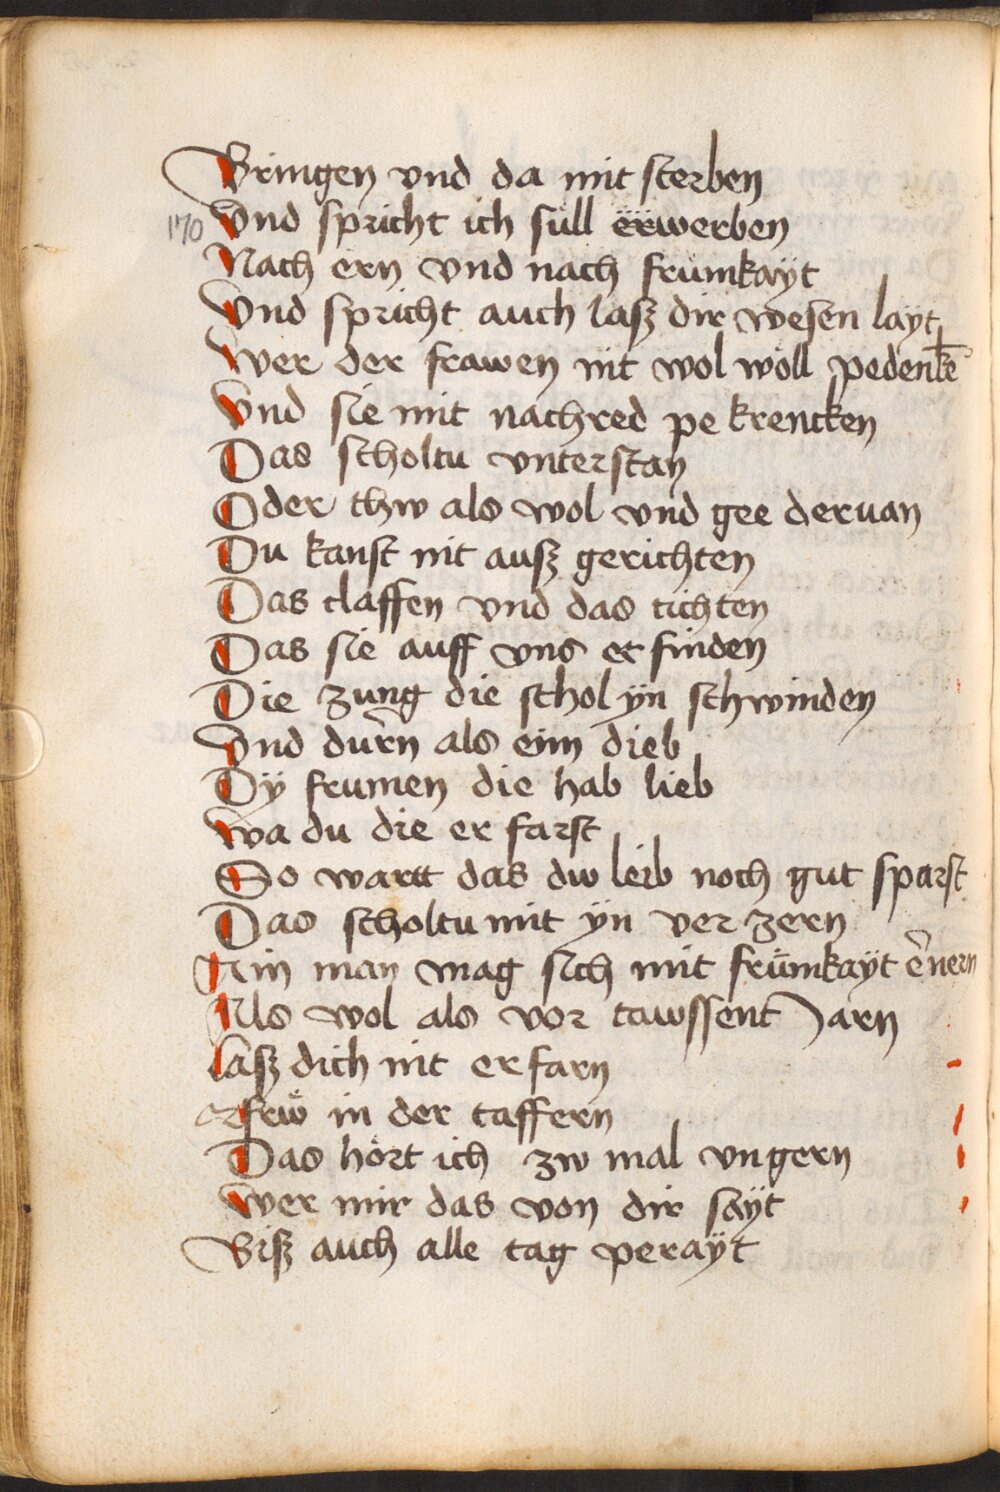 Bringen vnd da mit sterben
170 Vnd spricht ich süll erwerben
Nach ern vnd nach frümkaÿt
Vnd spricht auch lasz dir wesen laÿt
Wer der frawen nit wol wöll pedenkē
Vnd sie mit nachred pe krencken
Das scholtu vnterstan
Oder thw als wol vnd gee deruan
Du kanst nit ausz gerichten
Das claffen vnd das tichten
Das sie auff vns er finden
Die zung die schol ÿn schwinden
Vnd durn als einn dieb
Dÿ frumen die hab lieb
Wa du die er farst
So wartt das dw leib noch gut sparst
Das scholtu mit ÿn ver zern
Ain man mag sich mit frümkaÿt e͂nern
Als wol als vor tawssent Jarn
Lasz dich nit er farn
frw̋ in der taffern
Das hört ich zw mal vngern
Wer mir das von dir saÿt
Bisz auch alle tag peraÿt